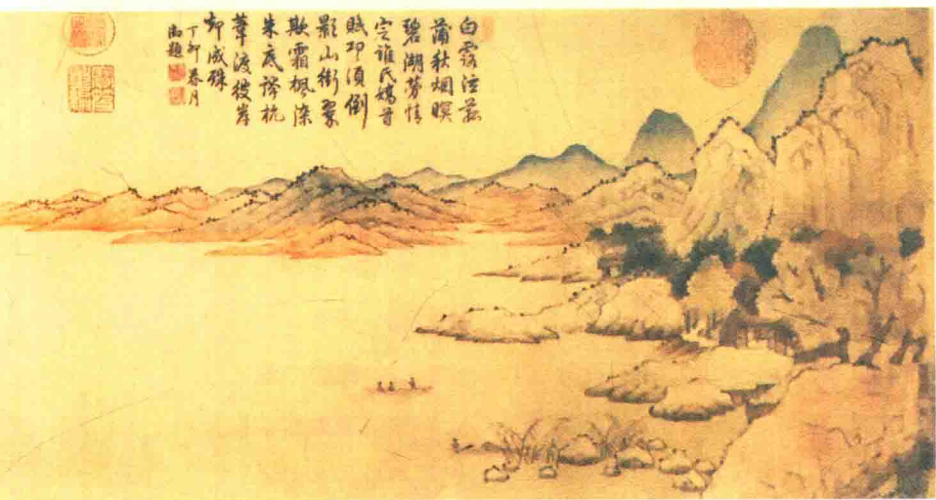 白露泫菰
蒲秋烟暝
碧湖勞情
定誰氏
賦卬須倒
影山銜翠
欺霜楓染
朱底誇杭
葦渡彼岸
却成殊
丁卯春月
御題